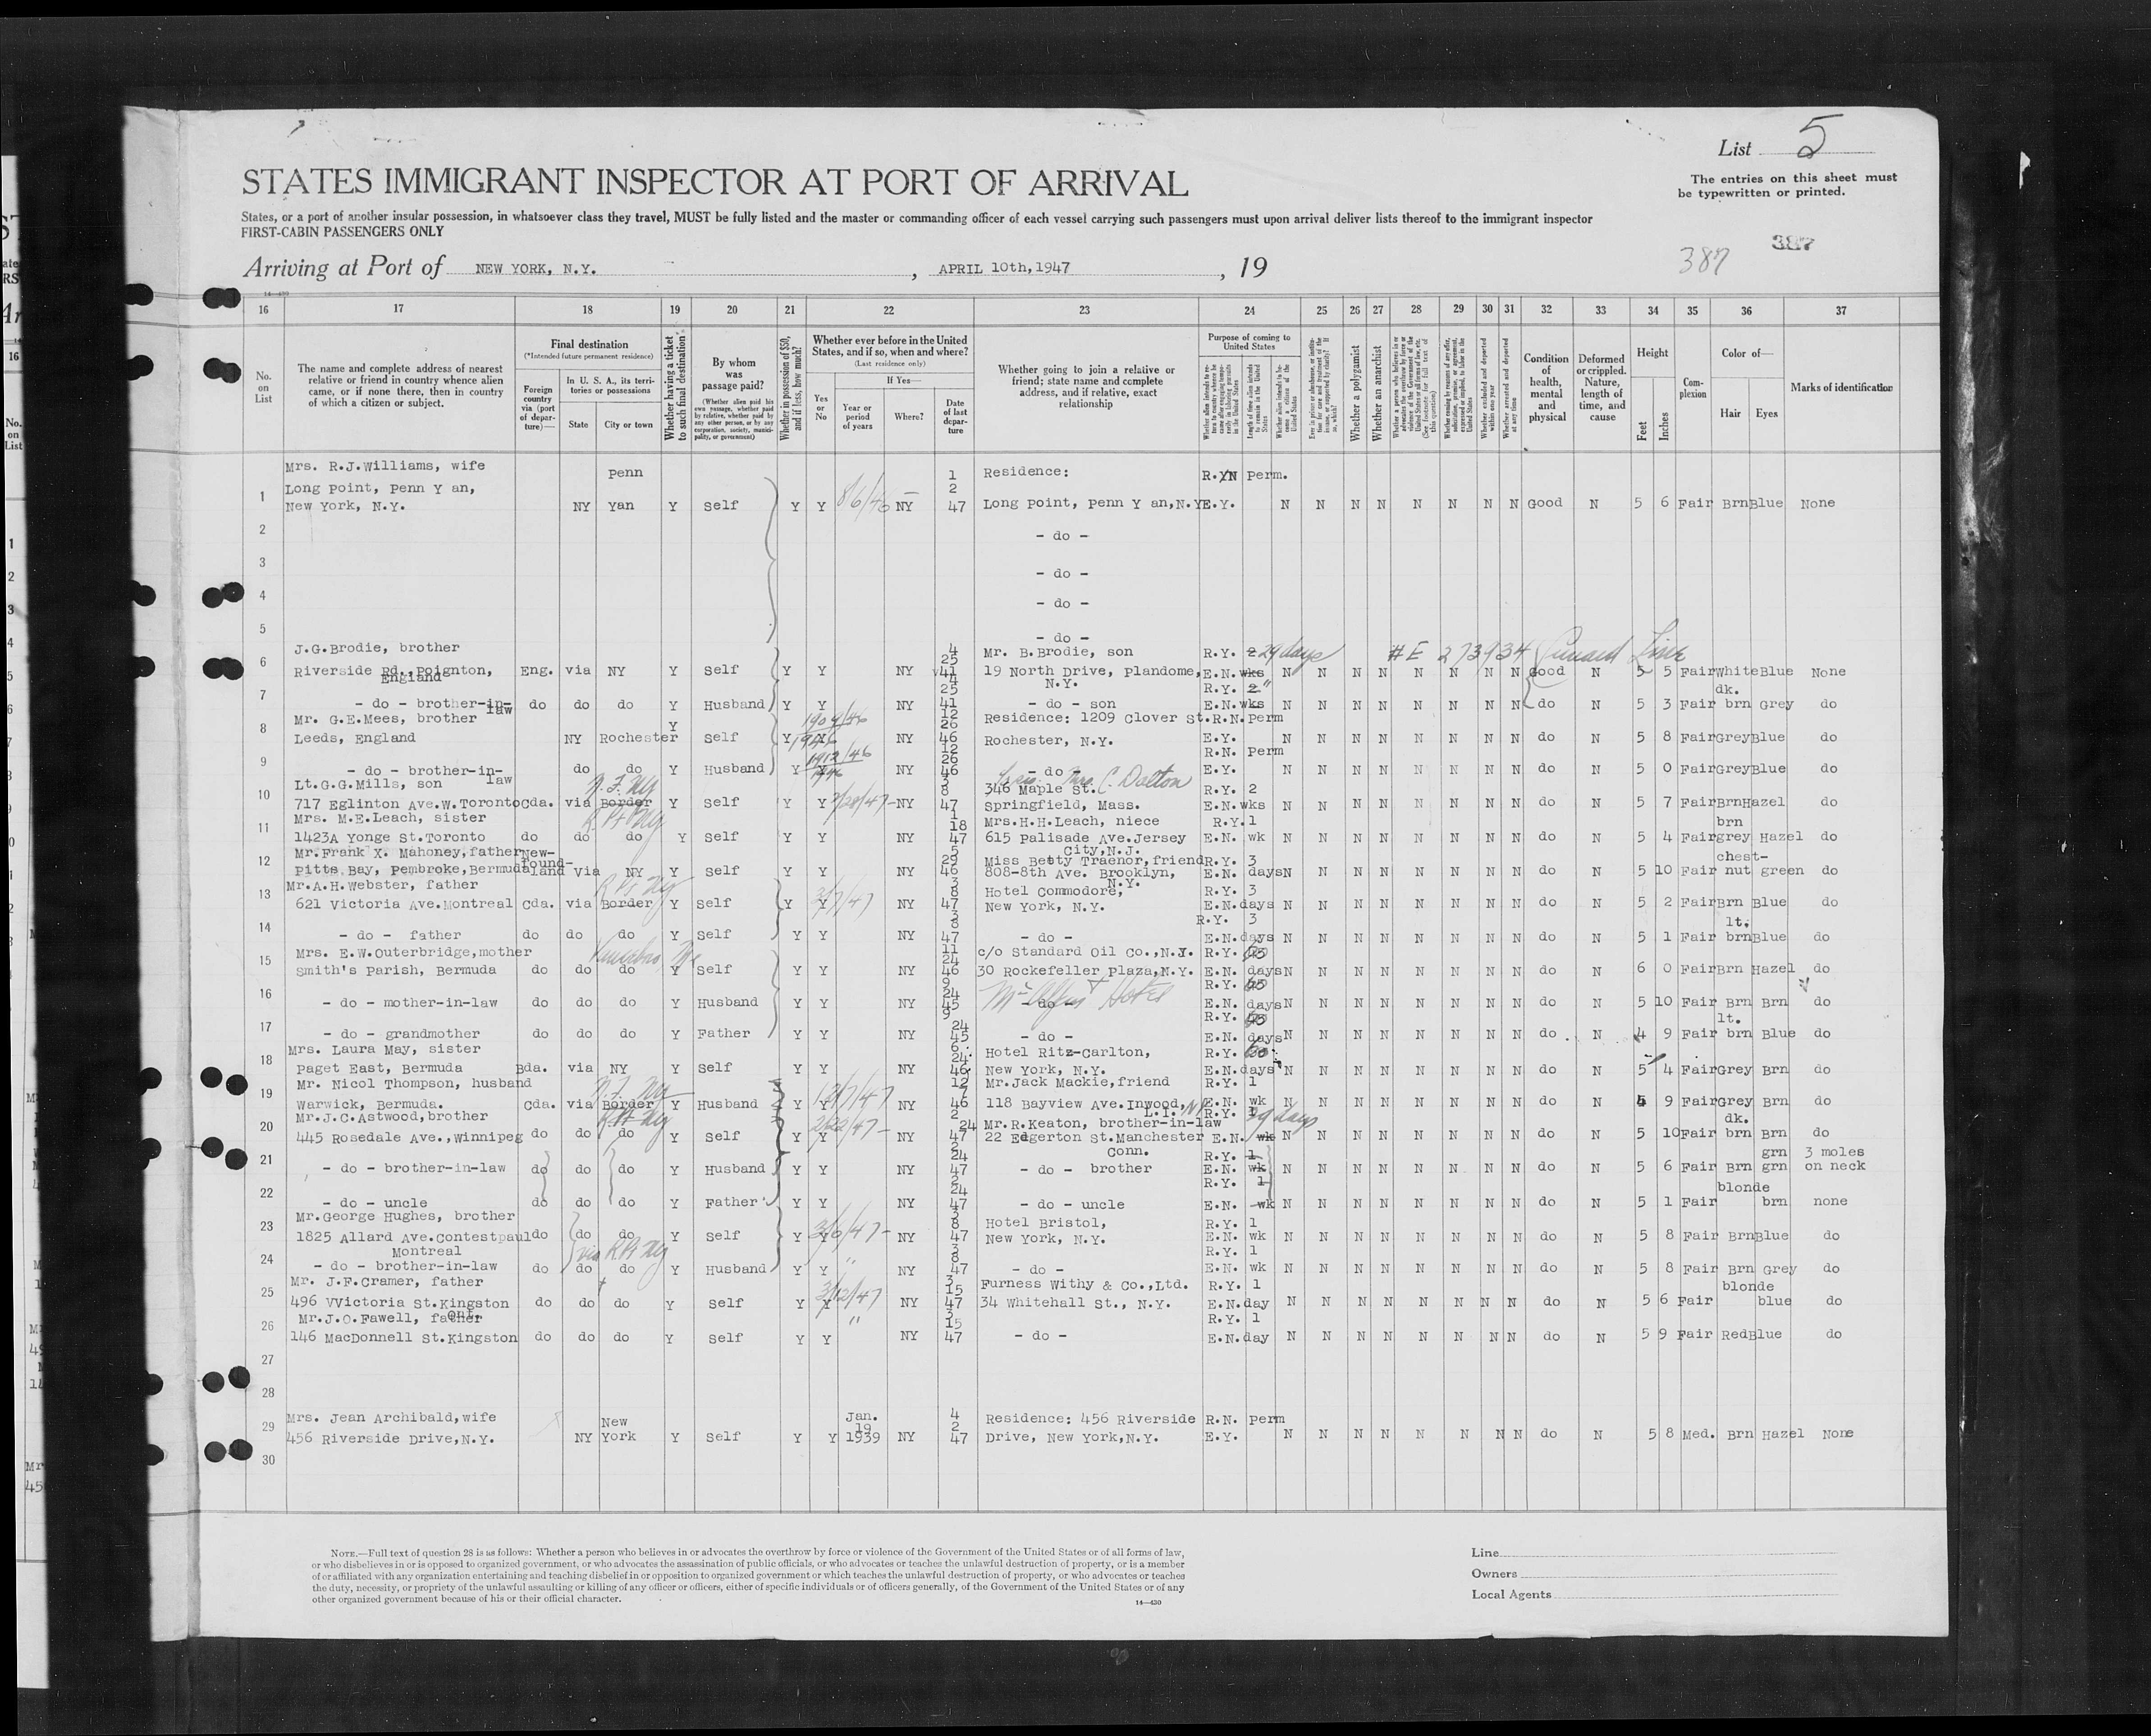 List 5
STATES IMMIGRANT INSPECTOR AT PORT OF ARRIVAL
The entries on this sheet must
be typewritten or printed.
States, or a port of another insular possession, in whatsoever class they travel, MUST be fully listed and the master or commanding officer of each vessel carrying such passengers must upon arrival deliver lists thereof to the immigrant inspector
FIRST-CABIN PASSENGERS ONLY
387 387
Arriving at Port of NEW YORK, N.Y. , APRIL 10th,1947 , 19
16 17 18 19 20 21 22 23 24 25 26 27 28 29 30 31 32 33 34 35 36 37
No. on List
The name and complete address of nearest relative or friend in country whence alien came, or if none there, then in country of which a citizen or subject.
Final destination
(*Intended future permanent residence)
Foreign country via (port of departure)—
In U. S. A., its territories or possessions
State City or town
Whether having a ticket to such final destination
By whom was passage paid?
(Whether alien paid his own passage, whether paid by relative, whether paid by any other person, or by any corporation, society, municipality, or government)
Whether in possession of $50, and if less, how much?
Whether ever before in the United States, and if so, when and where?
(Last residence only)
Yes or No
If Yes—
Year or period of years
Where?
Date of last departure
Whether going to join a relative or friend; state name and complete address, and if relative, exact relationship
Purpose of coming to United States
Whether a polygamist
Whether an anarchist
Condition of health, mental and physical
Deformed or crippled. Nature, length of time, and cause
Height
Feet Inches
Complexion
Color of—
Hair Eyes
Marks of identification
Mrs. R.J.Williams, wife penn 1 Residence: R.YN perm.
1 Long Point, Penn Y an, 2
New York, N.Y. NY Yan Y Self Y Y 8/6/46 — NY 47 Long Point, Penn Y an,N.Y E.Y. N N N N N N N N Good N 5 6 Fair Brn Blue None
2 - do -
3 - do -
4 - do -
5 - do -
J.G.Brodie, brother 4 Mr. B.Brodie, son R.Y. 2 29 days #E 273934 Cunard Line
6 25
Riverside Rd. Poignton, Eng. via NY Y Self Y Y NY 41 19 North Drive, Plandome, E.N. wks N N N N N N N N Good N 5 5 Fair White Blue None
England 4 N.Y. R.Y. 2 "
7 25 dk.
- do - brother-in-law do do do Y Husband Y Y NY 41 - do - son E.N. wks N N N N N N N N do N 5 3 Fair brn Grey do
Mr. G.E.Mees, brother 1904/46 12 Residence: 1209 Clover St. R.N. Perm
8 26
Leeds, England NY Rochester Y Self Y Y 1946 NY 46 Rochester, N.Y. E.Y. N N N N N N N N do N 5 8 Fair Grey Blue do
1912/46 12 R.N. Perm
9 26
- do - brother-in-law do do Y Husband Y Y 1946 NY 46 - do - E.Y. N N N N N N N N do N 5 0 Fair Grey Blue do
Lt.G.G.Mills, son N.F. NY 3 Mrs. C. Dalton
10 8 346 Maple St. R.Y. 2
717 Eglinton Ave.W.Toronto Cda. via Border Y Self Y Y 2/28/47- NY 47 Springfield, Mass. E.N. wks N N N N N N N N do N 5 7 Fair Brn Hazel do
Mrs. M.E.Leach, sister R. Pt NY 1 Mrs.H.H.Leach, niece R.Y. 1 brn
11 18
1423A Yonge St.Toronto do do do Y Self Y Y NY 47 615 Palisade Ave.Jersey City,N.J. E.N. wk N N N N N N N N do N 5 4 Fair grey Hazel do
Mr.Frank X. Mahoney,father New-found-land 5
12 29 Miss Betty Traenor,friend R.Y. 3 chest-
Pitts Bay, Pembroke,Bermuda via NY Y Self Y Y NY 46 808-8th Ave. Brooklyn, N.Y. E.N. days N N N N N N N N do N 5 10 Fair nut green do
Mr.A.H.Webster, father R Pt NY 3
13 8 Hotel Commodore, R.Y. 3
621 Victoria Ave.Montreal Cda. via Border Y Self Y Y 3/7/47 NY 47 New York, N.Y. E.N. days N N N N N N N N do N 5 2 Fair Brn Blue do
3 R.Y. 3 lt.
14 8
- do - father do do do Y Self Y Y NY 47 - do - E.N. days N N N N N N N N do N 5 1 Fair brn Blue do
Mrs. E.W.Outerbridge,mother Vanceboro Me 11 c/o Standard Oil Co.,N.J. R.Y.
15 24
Smith's Parish, Bermuda do do do Y Self Y Y NY 46 30 Rockefeller Plaza,N.Y. E.N. days N N N N N N N N do N 6 0 Fair Brn Hazel do
9 R.Y.
16 24 McAlpin Hotel
- do - mother-in-law do do do Y Husband Y Y NY 45 - do - E.N. days N N N N N N N N do N 5 10 Fair Brn Brn do
9 R.Y. lt.
17 24
- do - grandmother do do do Y Father Y Y NY 45 - do - E.N. days N N N N N N N N do N 4 9 Fair brn Blue do
Mrs. Laura May, sister 6
18 24 Hotel Ritz-Carlton, R.Y.
Paget East, Bermuda Bda. via NY Y Self Y Y NY 46 New York, N.Y. E.N. days N N N N N N N N do N 5 4 Fair Grey Brn do
Mr. Nicol Thompson, husband N.F. NY 12 Mr.Jack Mackie,friend R.Y. 1
19 7
Warwick, Bermuda. Cda. via Border Y Husband Y Y 12/7/47 NY 46 118 Bayview Ave.Inwood, L.I. NY E.N. wk N N N N N N N N do N 5 9 Fair Grey Brn do
Mr.J.C.Astwood,brother R Pt NY 2 R.Y. 1 29 days dk.
20 24 Mr.R.Keaton, brother-in-law
445 Rosedale Ave.,Winnipeg do do do Y Self Y Y 2/22/47- NY 47 22 Edgerton St.Manchester Conn. E.N. wk N N N N N N N N do N 5 10 Fair brn Brn do
2 R.Y. 1 grn 3 moles
21 24
- do - brother-in-law do do do Y Husband Y Y NY 47 - do - brother E.N. wk N N N N N N N N do N 5 6 Fair Brn grn on neck
2 R.Y. 1 blonde
22 24
- do - uncle do do do Y Father Y Y NY 47 - do - uncle E.N. wk N N N N N N N N do N 5 1 Fair brn none
Mr.George Hughes, brother 3
23 8 Hotel Bristol, R.Y. 1
1825 Allard Ave.Contestpaul do do do Y Self Y Y 3/6/47- NY 47 New York, N.Y. E.N. wk N N N N N N N N do N 5 8 Fair Brn Blue do
Montreal via R Pt NY 3 R.Y. 1
24 8
- do - brother-in-law do do do Y Husband Y Y " NY 47 - do - E.N. wk N N N N N N N N do N 5 8 Fair Brn Grey do
Mr. J.F.Cramer, father 3 Furness Withy & Co.,Ltd. R.Y. 1 blonde
25 15
496 VVictoria St.Kingston do do do Y Self Y Y 3/12/47 NY 47 34 Whitehall St., N.Y. E.N. day N N N N N N N N do N 5 6 Fair blue do
Ont. 3
Mr.J.O.Fawell, father " 15 R.Y. 1
26
146 MacDonnell St.Kingston do do do Y Self Y Y NY 47 - do - E.N. day N N N N N N N N do N 5 9 Fair Red Blue do
27
28
Mrs. Jean Archibald,wife New Jan. 4 Residence: 456 Riverside R.N. perm
29 19 2
456 Riverside Drive,N.Y. NY York Y Self Y Y 1939 NY 47 Drive, New York,N.Y. E.Y. N N N N N N N N do N 5 8 Med. Brn Hazel None
30
NOTE.—Full text of question 28 is as follows: Whether a person who believes in or advocates the overthrow by force or violence of the Government of the United States or of all forms of law,
or who disbelieves in or is opposed to organized government, or who advocates the assassination of public officials, or who advocates or teaches the unlawful destruction of property, or is a member
of or affiliated with any organization entertaining and teaching disbelief in or opposition to organized government or which teaches the unlawful destruction of property, or who advocates or teaches
the duty, necessity, or propriety of the unlawful assaulting or killing of any officer or officers, either of specific individuals or of officers generally, of the Government of the United States or of any
other organized government because of his or their official character.
14—430
Line
Owners
Local Agents